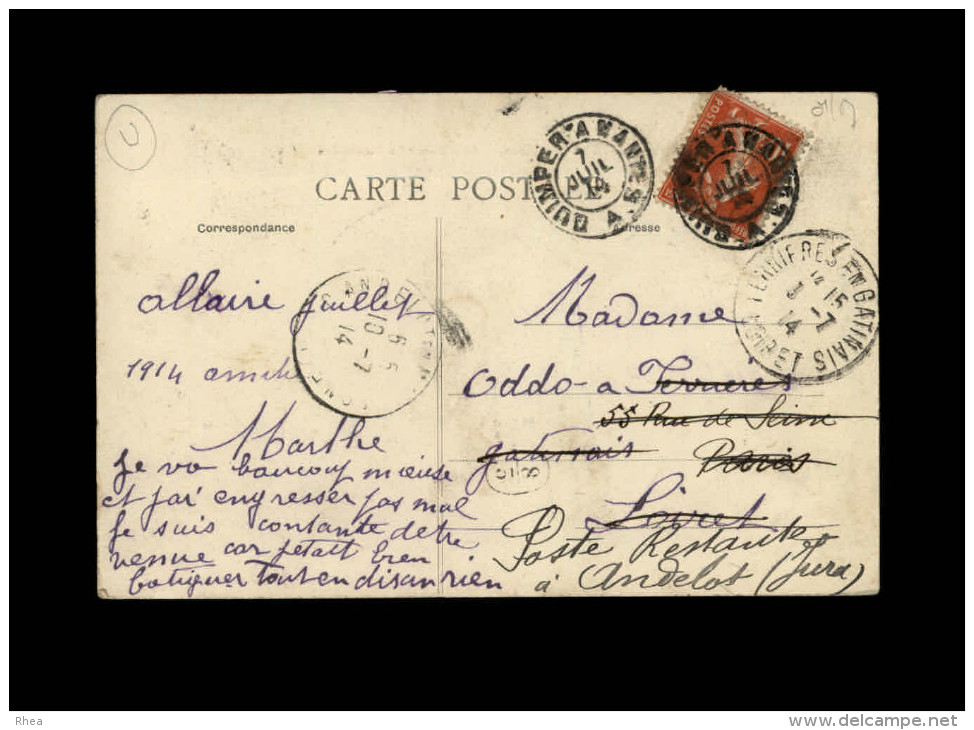 CARTE POSTALE
Correspondance
Adresse
QUIMPER A NANTES
7
JUIL
14
FERRIERES EN GATINAIS
15
7
14
LOIRET
allaire juillet
1914
Marthe
je va baucouy mieuse
et j'ai engresser pas mal
je suis contante detre
venue car jetait bien
batiguer tout en disan rien
10 - 7
14
Madame
Oddo à Ferrieres
55 Rue de Seine
gatinais Paris
Loiret
Poste Restante
à Andelot (Jura)
Rhea
www.delcampe.net